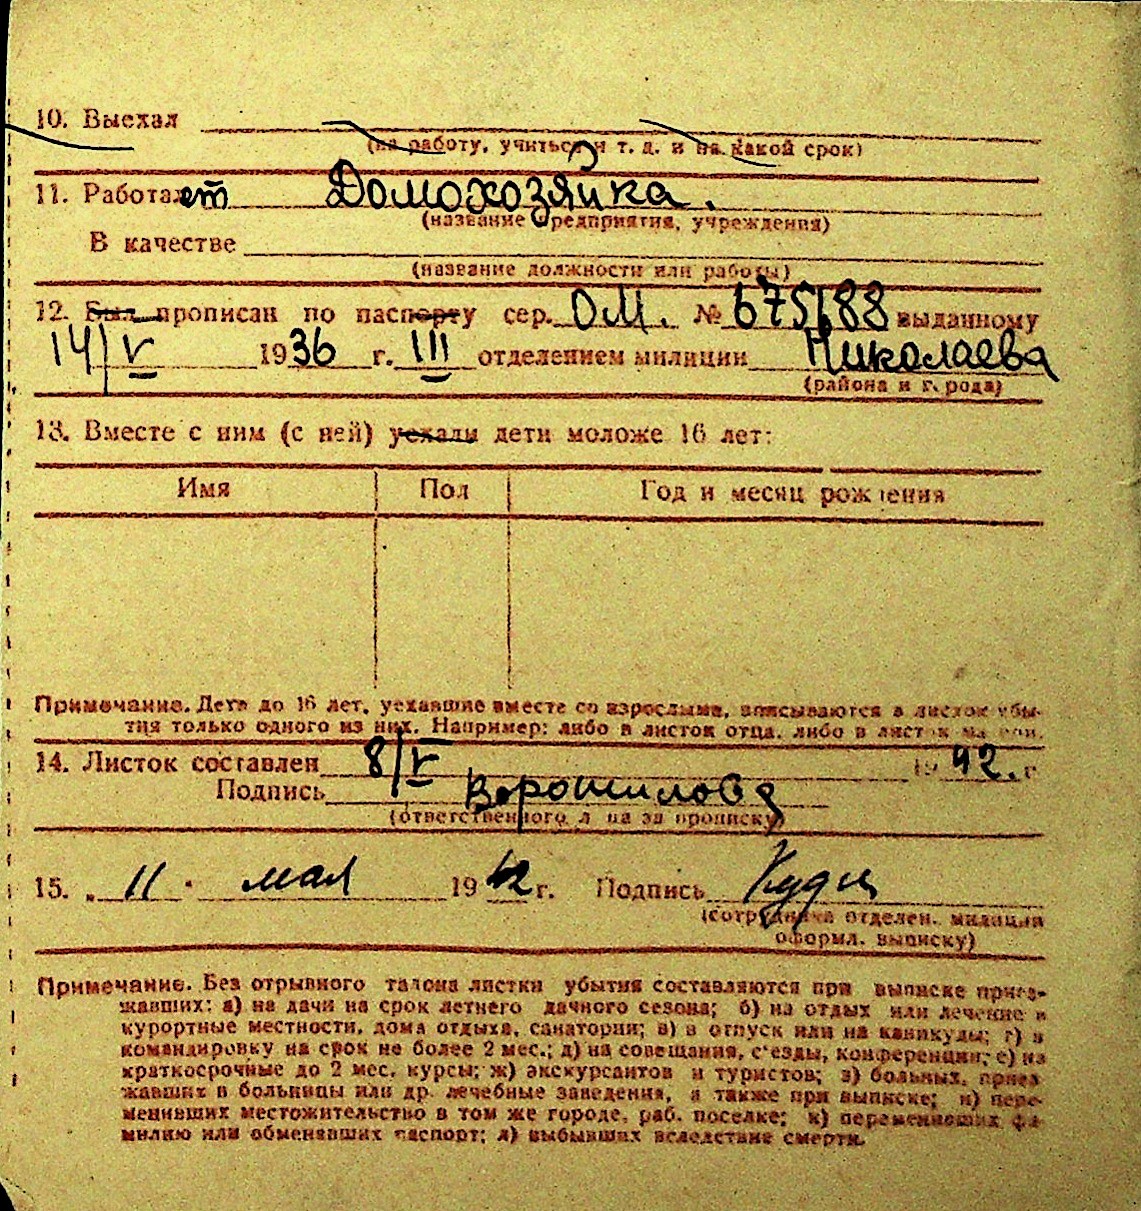 10. Выехал
(на работу, учиться и т. д. и на какой срок)
11. Работает Домохозяйка.
(название предприятия, учреждения)
В качестве
(название должности или работы)
12. Был прописан по паспорту сер. ОМ. № 675188 выданному
14/V 1936 г. III отделением милиции Николаева
(района и города)
13. Вместе с ним (с ней) уехали дети моложе 16 лет:
Имя Пол Год и месяц рождения
Примечание. Дети до 16 лет, уехавшие вместе со взрослыми, вписываются в листок убы-
тия только одного из них. Например: либо в листок отца, либо в листок матери.
14. Листок составлен 8/V 1942. г
Подпись Ворошилова
(ответственного лица за прописку)
15. „ 11 " мая 1942 г. Подпись
(сотрудника отделен. милиции
оформл. выписку)
Примечание. Без отрывного талона листки убытия составляются при выписке приез-
жавших: а) на дачи на срок летнего дачного сезона; б) на отдых или лечение в
курортные местности, дома отдыха, санатории; в) в отпуск или на каникулы; г) в
командировку на срок не более 2 мес.; д) на совещания, с'езды, конференции; е) на
краткосрочные до 2 мес. курсы; ж) экскурсантов и туристов; з) больных, приез-
жавших в больницы или др. лечебные заведения, а также при выписке; и) пере-
менивших местожительство в том же городе, раб. поселке; к) переменивших фа-
милию или обменявших паспорт; л) выбывших вследствие смерти.